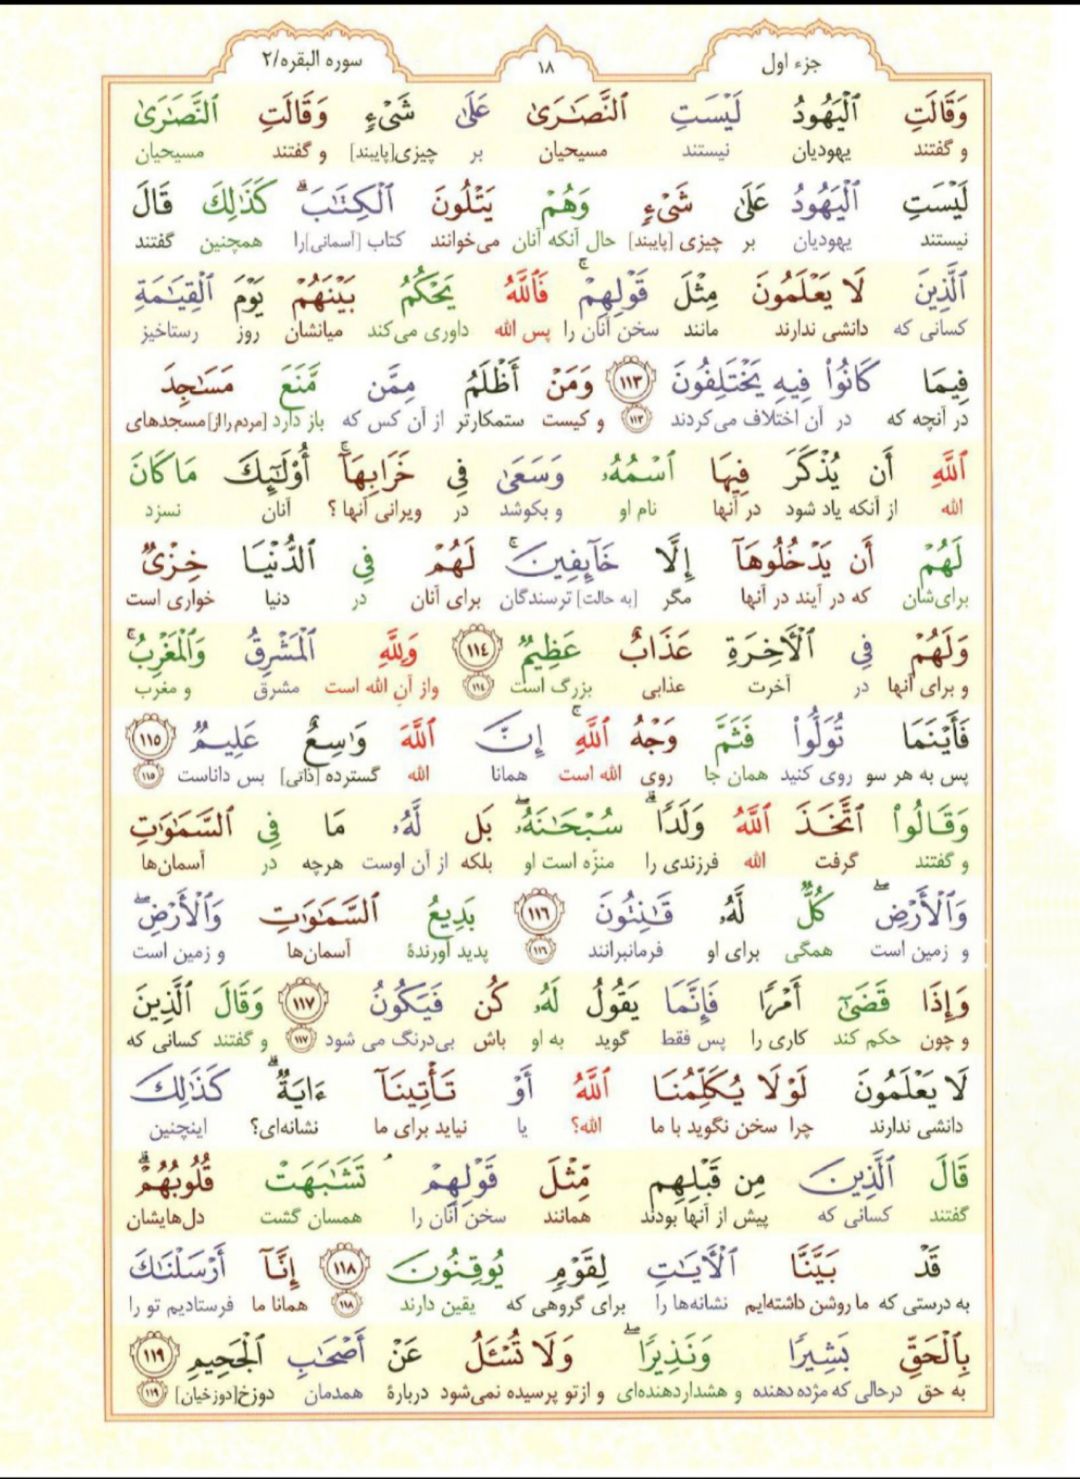 جزء اول ۱۸ سوره البقره/۲
وَقَالَتِ ٱلْيَهُودُ لَيْسَتِ ٱلنَّصَـٰرَىٰ عَلَىٰ شَىْءٍ وَقَالَتِ ٱلنَّصَـٰرَىٰ
و گفتند یهودیان نیستند مسیحیان بر چیزی[پایبند] و گفتند مسیحیان
لَيْسَتِ ٱلْيَهُودُ عَلَىٰ شَىْءٍ وَهُمْ يَتْلُونَ ٱلْكِتَـٰبَ ۗ كَذَٰلِكَ قَالَ
نیستند یهودیان بر چیزی [پایبند] حال آنکه آنان می‌خوانند کتاب [آسمانی]را همچنین گفتند
ٱلَّذِينَ لَا يَعْلَمُونَ مِثْلَ قَوْلِهِمْ ۚ فَٱللَّهُ يَحْكُمُ بَيْنَهُمْ يَوْمَ ٱلْقِيَـٰمَةِ
کسانی که دانشی ندارند مانند سخن آنان را پس الله داوری می‌کند میانشان روز رستاخیز
فِيمَا كَانُوا۟ فِيهِ يَخْتَلِفُونَ ۱۱۳ وَمَنْ أَظْلَمُ مِمَّن مَّنَعَ مَسَـٰجِدَ
در آنچه که در آن اختلاف می‌کردند ۱۱۳ و کیست ستمکارتر از آن کس که باز دارد [مردم را از] مسجدهای
ٱللَّهِ أَن يُذْكَرَ فِيهَا ٱسْمُهُۥ وَسَعَىٰ فِى خَرَابِهَآ ۚ أُو۟لَـٰٓئِكَ مَا كَانَ
الله از آنکه یاد شود در آنها نام او و بکوشد در ویرانی آنها ؟ آنان نسزد
لَهُمْ أَن يَدْخُلُوهَآ إِلَّا خَآئِفِينَ ۚ لَهُمْ فِى ٱلدُّنْيَا خِزْىٌ
برای‌شان که در آیند در آنها مگر [به حالت] ترسندگان برای آنان در دنیا خواری است
وَلَهُمْ فِى ٱلْـَٔاخِرَةِ عَذَابٌ عَظِيمٌ ١١٤ وَلِلَّهِ ٱلْمَشْرِقُ وَٱلْمَغْرِبُ ۚ
و برای آنها در آخرت عذابی بزرگ است ١١٤ واز آنِ الله است مشرق و مغرب
فَأَيْنَمَا تُوَلُّوا۟ فَثَمَّ وَجْهُ ٱللَّهِ ۚ إِنَّ ٱللَّهَ وَٰسِعٌ عَلِيمٌ ۱۱۵
پس به هر سو روی کنید همان جا روی الله است همانا الله گسترده [ذاتی] بس داناست ۱۱۵
وَقَالُوا۟ ٱتَّخَذَ ٱللَّهُ وَلَدًا ۗ سُبْحَـٰنَهُۥ ۖ بَل لَّهُۥ مَا فِى ٱلسَّمَـٰوَٰتِ
و گفتند گرفت الله فرزندی را منزّه است او بلکه از آن اوست هرچه در آسمان‌ها
وَٱلْأَرْضِ ۖ كُلٌّ لَّهُۥ قَـٰنِتُونَ ۱۱۶ بَدِيعُ ٱلسَّمَـٰوَٰتِ وَٱلْأَرْضِ ۖ
و زمین است همگی برای او فرمانبرانند ۱۱۶ پدید آورندهٔ آسمان‌ها و زمین است
وَإِذَا قَضَىٰٓ أَمْرًا فَإِنَّمَا يَقُولُ لَهُۥ كُن فَيَكُونُ ۱۱۷ وَقَالَ ٱلَّذِينَ
و چون حکم کند کاری را پس فقط گوید به او باش بی‌درنگ می شود ۱۱۷ و گفتند کسانی که
لَا يَعْلَمُونَ لَوْلَا يُكَلِّمُنَا ٱللَّهُ أَوْ تَأْتِينَآ ءَايَةٌ ۗ كَذَٰلِكَ
دانشی ندارند چرا سخن نگوید با ما الله؟ یا نیاید برای ما نشانه‌ای؟ اینچنین
قَالَ ٱلَّذِينَ مِن قَبْلِهِم مِّثْلَ قَوْلِهِمْ ۘ تَشَـٰبَهَتْ قُلُوبُهُمْ ۗ
گفتند کسانی که پیش از آنها بودند همانند سخن آنان را همسان گشت دل‌هایشان
قَدْ بَيَّنَّا ٱلْـَٔايَـٰتِ لِقَوْمٍ يُوقِنُونَ ۱۱۸ إِنَّآ أَرْسَلْنَـٰكَ
به درستی که ما روشن داشته‌ایم نشانه‌ها را برای گروهی که یقین دارند ۱۱۸ همانا ما فرستادیم تو را
بِٱلْحَقِّ بَشِيرًا وَنَذِيرًا ۖ وَلَا تُسْـَٔلُ عَنْ أَصْحَـٰبِ ٱلْجَحِيمِ ۱۱۹
به حق درحالی که مژده دهنده و هشداردهنده‌ای و ازتو پرسیده نمی‌شود دربارهٔ همدمان دوزخ[دوزخیان] ۱۱۹